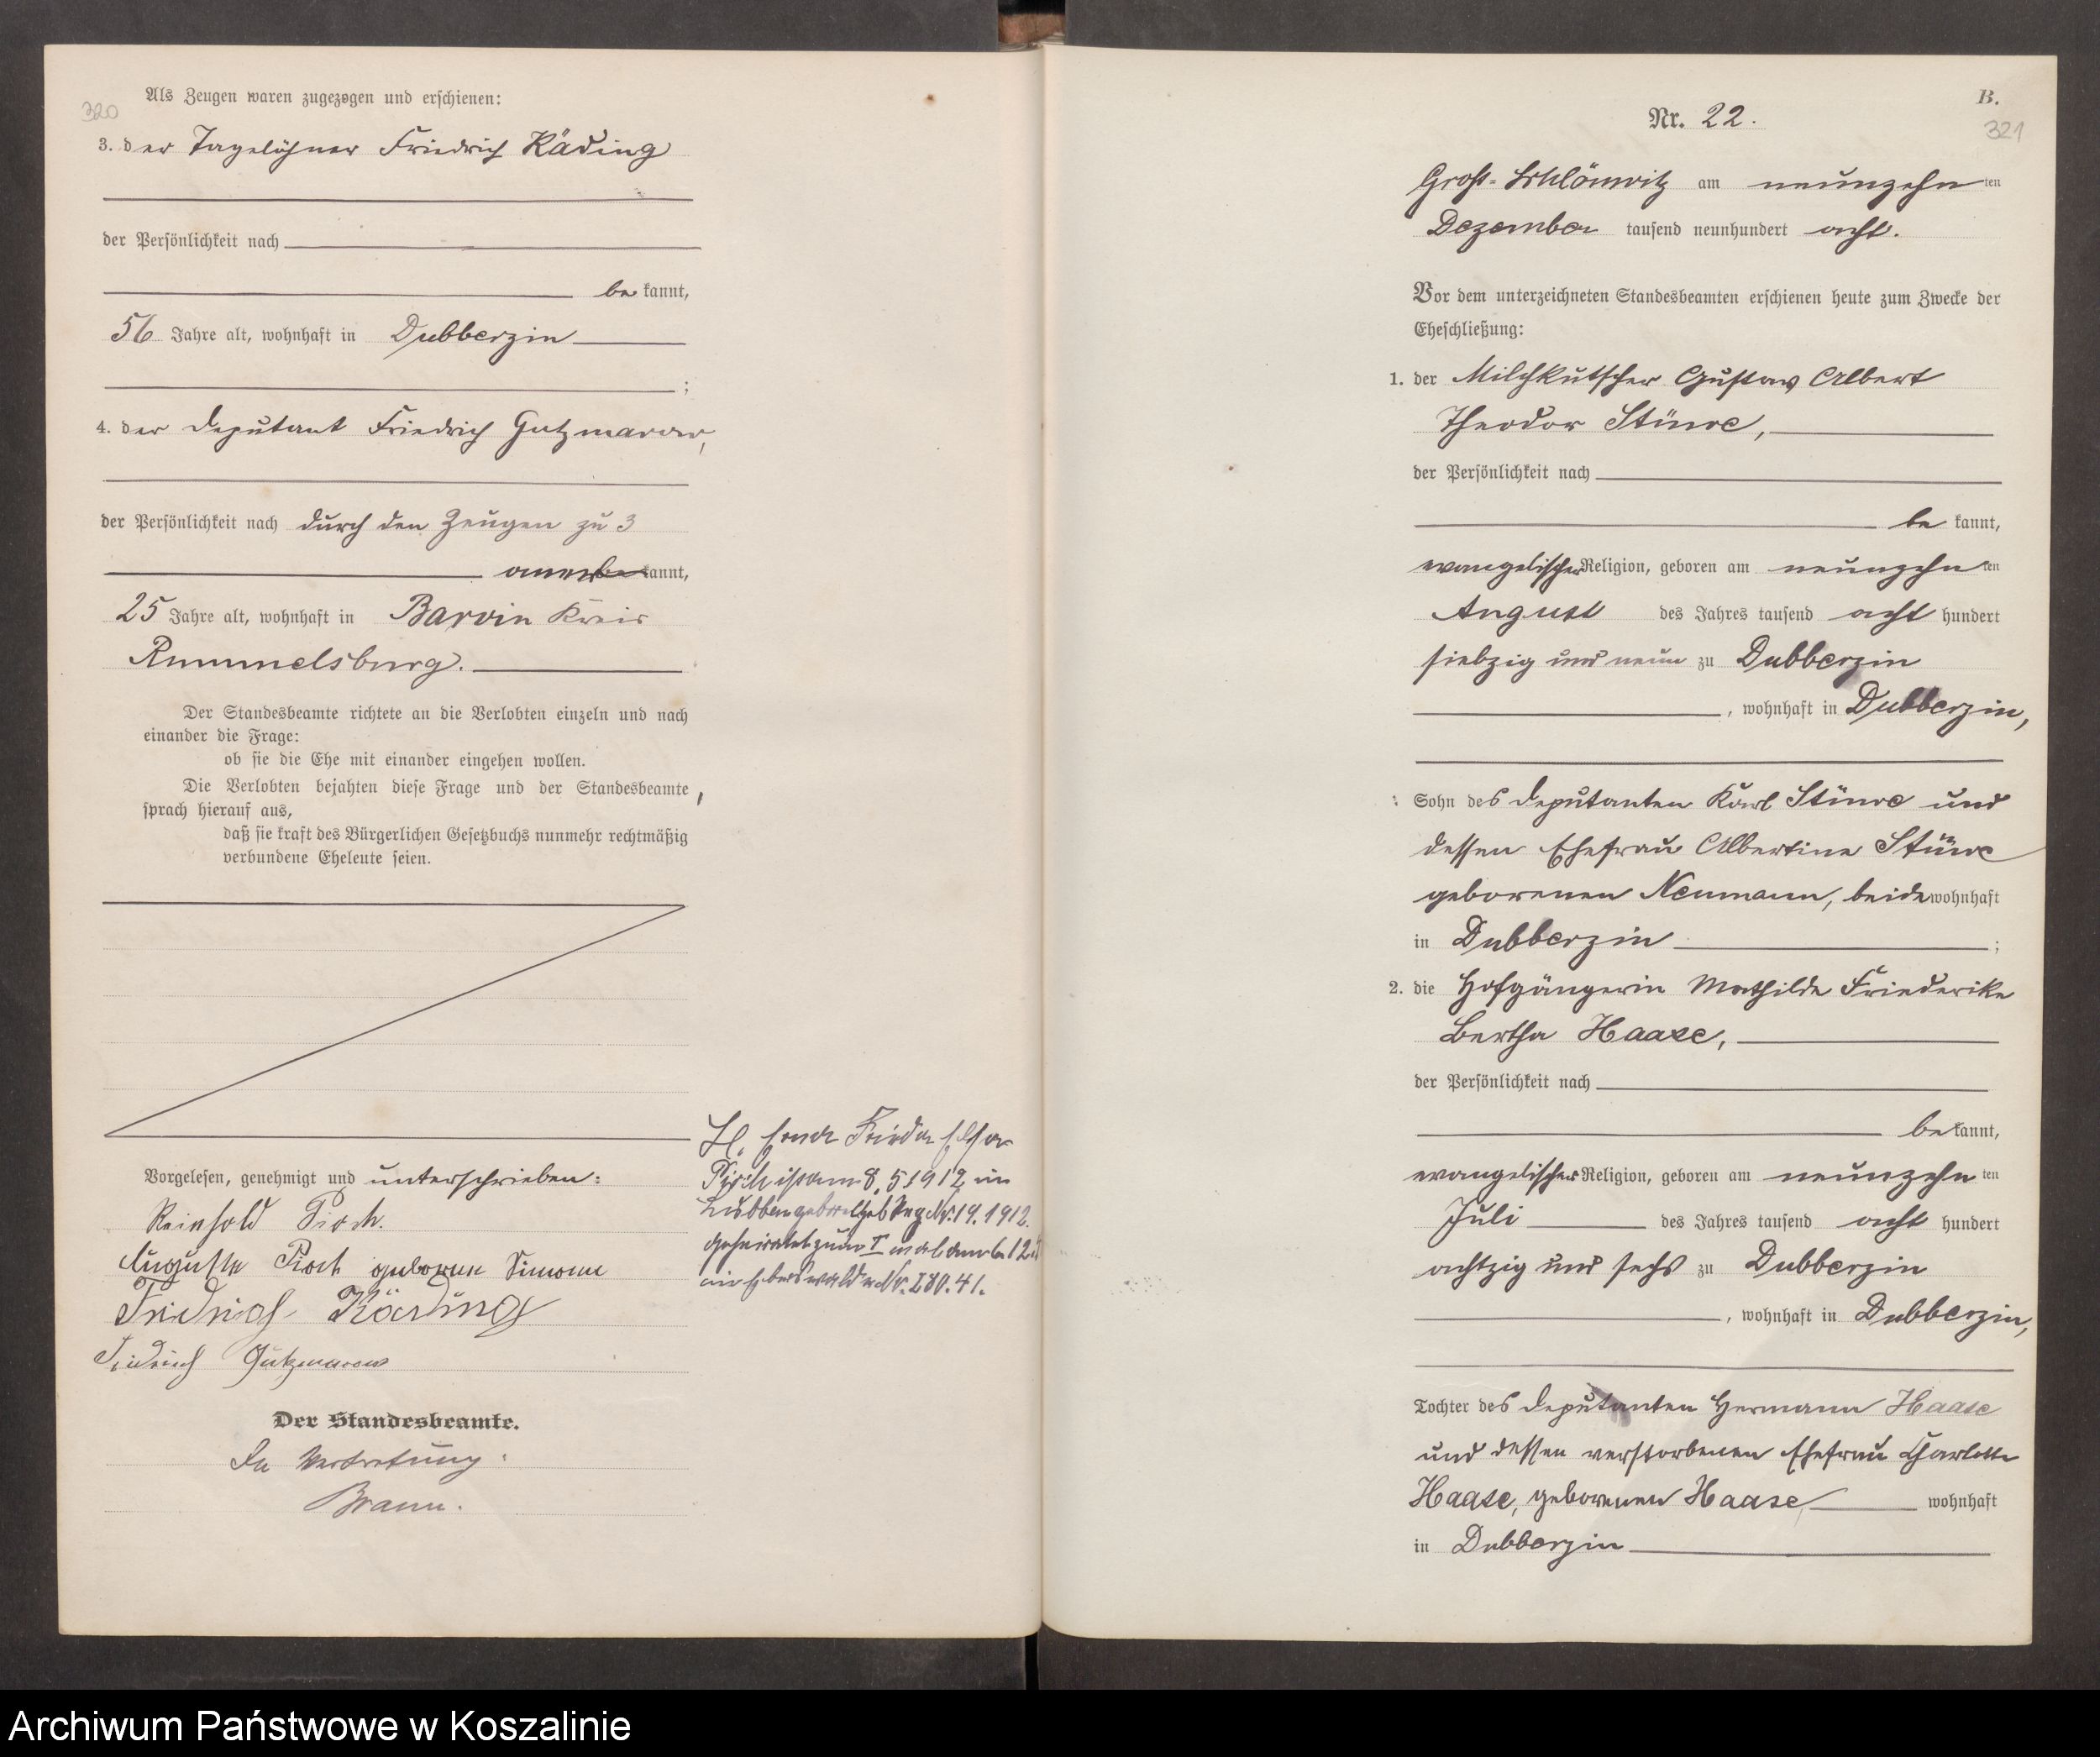 320
Als Zeugen waren zugezogen und erschienen:
3. der Tagelöhner Friedrich Räding
der Persönlichkeit nach
be kannt,
56 Jahre alt, wohnhaft in Dubberzin
;
4. der Deputant Friedrich Gutzmerow,
der Persönlichkeit nach durch den Zeugen zu 3
anerkannt,
25 Jahre alt, wohnhaft in Barvin Kreis
Rummelsburg.
Der Standesbeamte richtete an die Verlobten einzeln und nach
einander die Frage:
ob sie die Ehe mit einander eingehen wollen.
Die Verlobten bejahten diese Frage und der Standesbeamte
sprach hierauf aus,
daß sie kraft des Bürgerlichen Gesetzbuchs nunmehr rechtmäßig
verbundene Eheleute seien.
Vorgelesen, genehmigt und unterschrieben:
Reinhold Pioch.
Auguste Pioch geborene Simon
Friedrich Räding
Friedrich Gutzmerow
Der Standesbeamte.
In Vertretung:
Braun.
Frieda
am 8.5.1912 in
Nr. 14.1912.
geheiratet zum I mal am 6.12.
in Eberswalde Nr. 280.41.
B.
321
Nr. 22.
Groß-Schlönwitz am neunzehn ten
Dezember tausend neunhundert acht.
Vor dem unterzeichneten Standesbeamten erschienen heute zum Zwecke der
Eheschließung:
1. der Milchkutscher Gustav Albert
Theodor Stüwe,
der Persönlichkeit nach
be kannt,
evangelischer Religion, geboren am neunzehn ten
August des Jahres tausend acht hundert
siebzig und neun zu Dubberzin
, wohnhaft in Dubberzin,
Sohn des Deputanten Karl Stüwe und
dessen Ehefrau Albertine Stüwe
geborenen Neumann, beide wohnhaft
in Dubberzin ;
2. die Hofgängerin Mathilde Friederike
Bertha Haase,
der Persönlichkeit nach
be kannt,
evangelischer Religion, geboren am neunzehn ten
Juli des Jahres tausend acht hundert
achtzig und sechs zu Dubberzin
, wohnhaft in Dubberzin,
Tochter des Deputanten Hermann Haase
und dessen verstorbenen Ehefrau Charlotte
Haase, geborenen Haase wohnhaft
in Dubberzin
Archiwum Państwowe w Koszalinie